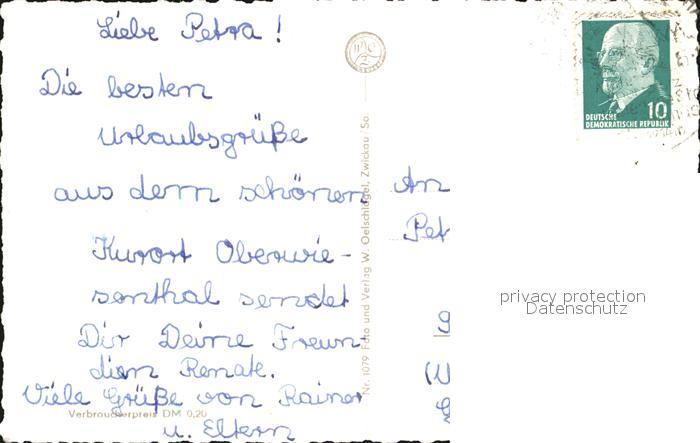 Liebe Petra!
Die besten
Urlaubsgrüße
aus dem schönen
Kurort Oberwie-
senthal sendet
Dir Deine Freun-
din Renate.
Viele Grüße von Rainer
u. Eltern
Verbraucherpreis DM 0,20
Nr. 1079 Foto und Verlag W. Oelschlägel, Zwickau/Sa.
An
Pet
DEUTSCHE
DEMOKRATISCHE REPUBLIK
10
privacy protection
Datenschutz